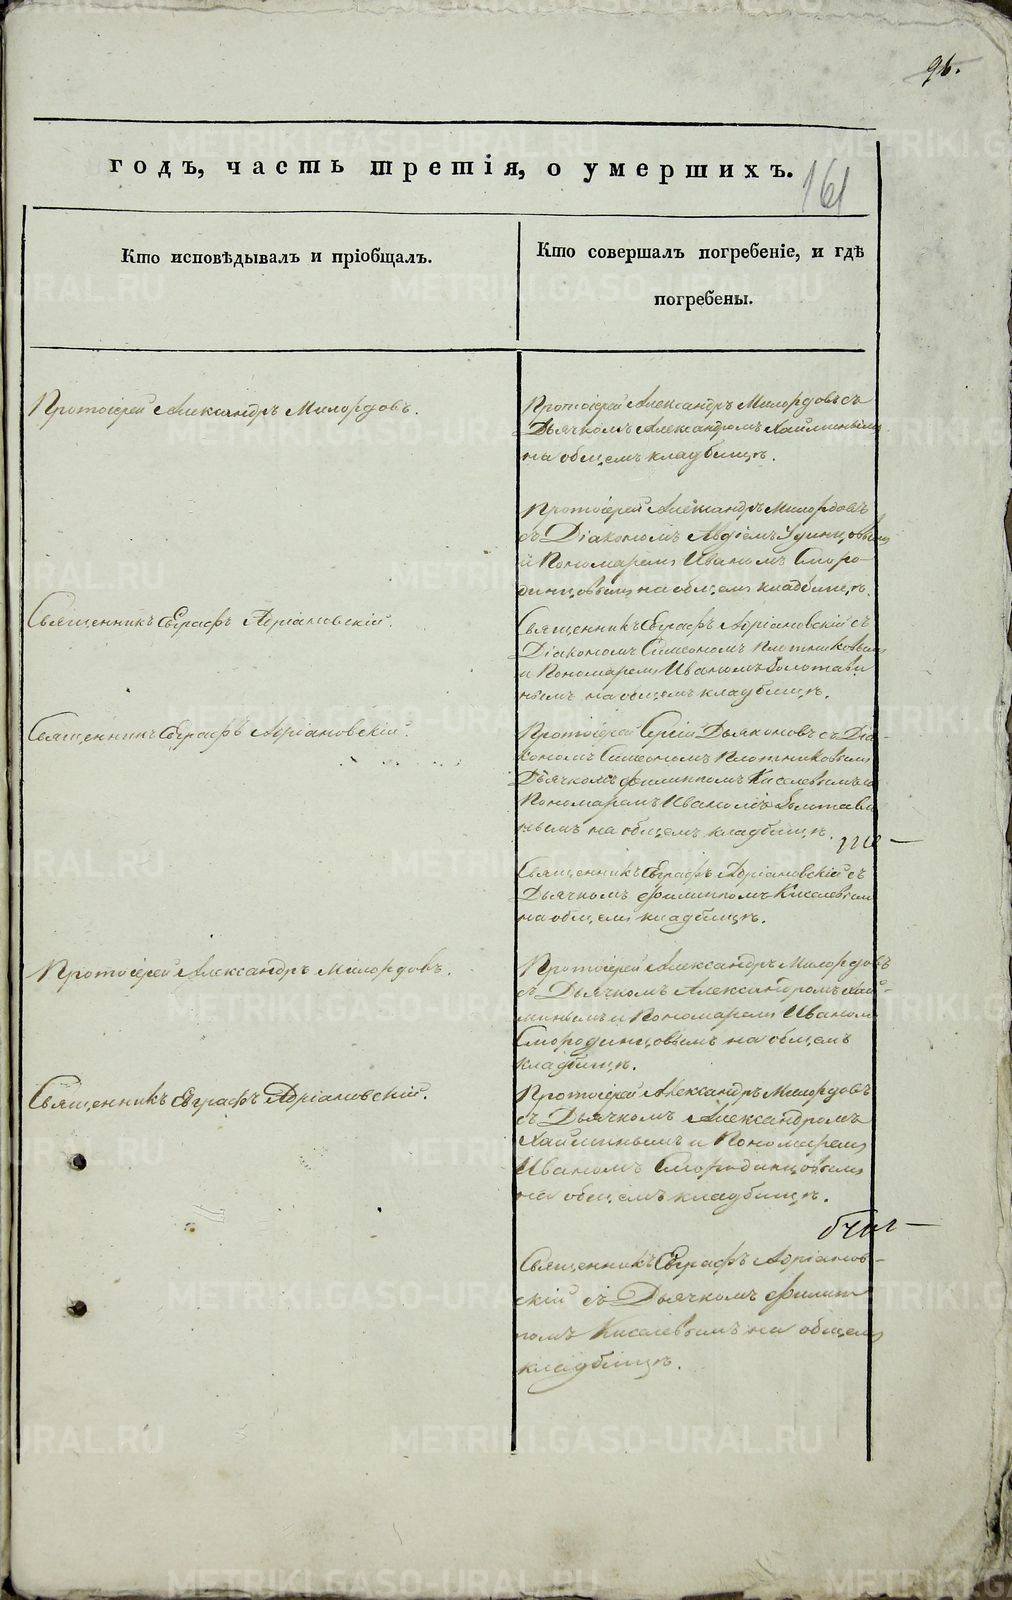 96.
годъ, часть третія, о умершихъ.
161
Кто исповѣдывалъ и пріобщалъ.
Кто совершалъ погребеніе, и гдѣ
погребены.
Протоіерей Александръ Милордовъ.
Протоіерей Александръ Милордовъ съ
Дьячкомъ Александромъ
на общемъ кладбищѣ.
Протоіерей Александръ Милордовъ
съ Діакономъ Авдіемъ Удинцовымъ
и Пономаремъ Иваномъ Сморо-
динцовымъ на общемъ кладбищѣ.
Священникъ Евграфъ Адріановскій.
Священникъ Евграфъ Адріановскій съ
Діакономъ Симеономъ Плотниковымъ
и Пономаремъ Иваномъ Болотави
нымъ на общемъ кладбищѣ.
Священникъ Евграфъ Адріановскій.
Протоіерей Сергій Дьяконовъ съ Діа-
кономъ Симеономъ Плотниковымъ
Дьячкомъ Филиппомъ Киселевымъ и
Пономаремъ Иваномъ Болотави
нымъ на общемъ кладбищѣ.
Священникъ Евграфъ Адріановскій съ
Дьячкомъ Филиппомъ Киселевымъ
на общемъ кладбищѣ.
Протоіерей Александръ Милордовъ.
Протоіерей Александръ Милордовъ
съ Дьячкомъ Александромъ
и Пономаремъ Иваномъ
Смородинцовымъ на общемъ
кладбищѣ.
Священникъ Евграфъ Адріановскій.
Протоіерей Александръ Милордовъ
съ Дьячкомъ Александромъ
и Пономаремъ
Иваномъ Смородинцовымъ
на общемъ кладбищѣ.
Священникъ Евграфъ Адріанов-
скій съ Дьячкомъ Филип
помъ Киселевымъ на общемъ
кладбищѣ.
METRIKI.GASO-URAL.RU